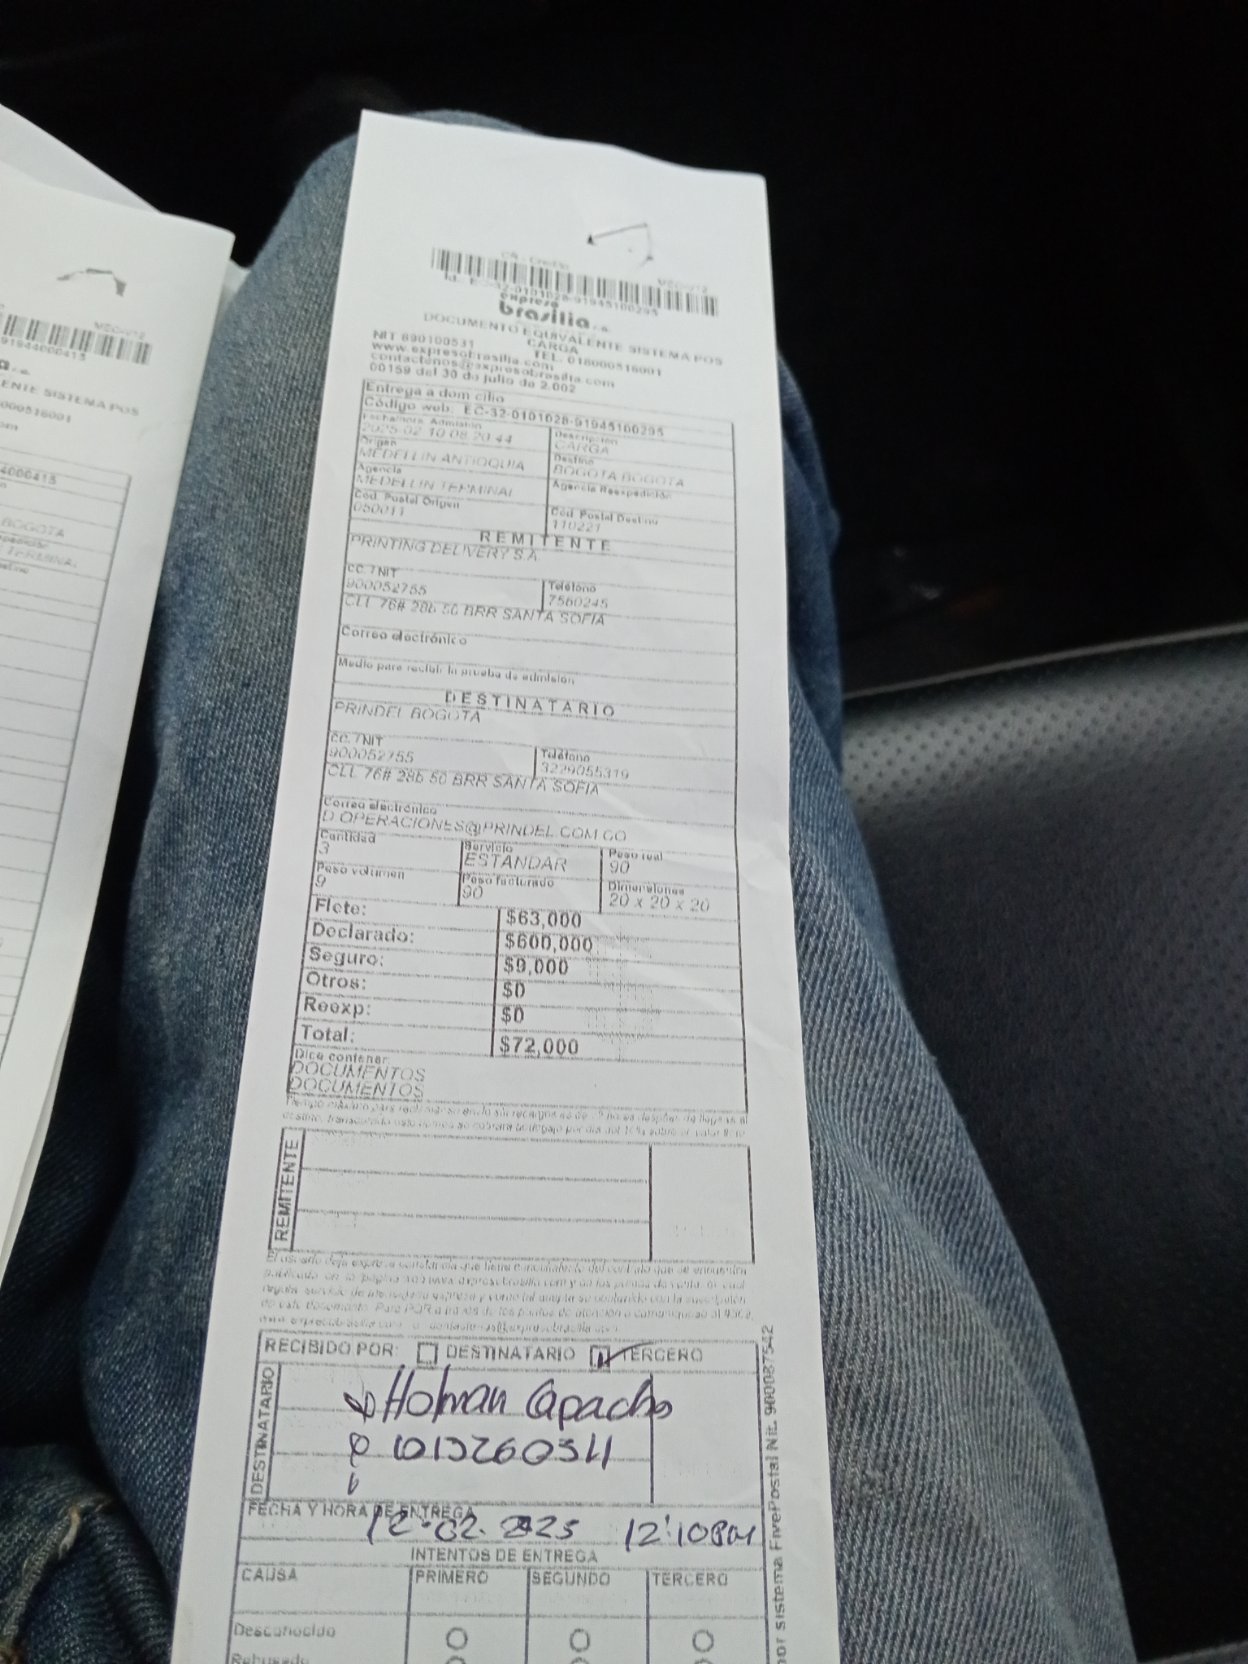 91944000413
ENTE SISTEMA POS
BOGOTA
expreso
brasilia s.a.
Id.: EC-32-0101028-91945100295
DOCUMENTO EQUIVALENTE SISTEMA POS
CARGA
NIT 890100531 TEL. 018000516001
www.expresobrasilia.com
contactenos@expresobrasilia.com
00159 del 30 de julio de 2.002
Entrega a domicilio
Código web: EC-32-0101028-91945100295
Fecha/hora Admisión Descripción
2025-02-10 08:20:44 CARGA
Origen Destino
MEDELLIN ANTIOQUIA BOGOTA BOGOTA
Agencia Agencia Reexpedición
MEDELLIN TERMINAL
Cód. Postal Origen Cód. Postal Destino
050011 110221
REMITENTE
PRINTING DELIVERY S.A.
CC. / NIT Teléfono
900052755 7560245
CLL 76# 28b 50 BRR SANTA SOFIA
Correo electrónico
Medio para recibir la prueba de admisión
DESTINATARIO
PRINDEL BOGOTA
CC. / NIT Teléfono
900052755 3229055319
CLL 76# 28b 50 BRR SANTA SOFIA
Correo electrónico
D.OPERACIONES@PRINDEL.COM.CO
Cantidad Servicio Peso real
3 ESTANDAR 90
Peso volumen Peso facturado Dimensiones
9 90 20 x 20 x 20
Flete: $63,000
Declarado: $600,000
Seguro: $9,000
Otros: $0
Reexp: $0
Total: $72,000
Dice contener:
DOCUMENTOS
DOCUMENTOS
REMITENTE
RECIBIDO POR: DESTINATARIO TERCERO
DESTINATARIO
Holman Capacho
1013260311
FECHA Y HORA DE ENTREGA
12-02-2025 12:10PM
INTENTOS DE ENTREGA
CAUSA PRIMERO SEGUNDO TERCERO
Desconocido
Rehusado
por sistema FivePostal Nit. 900087542